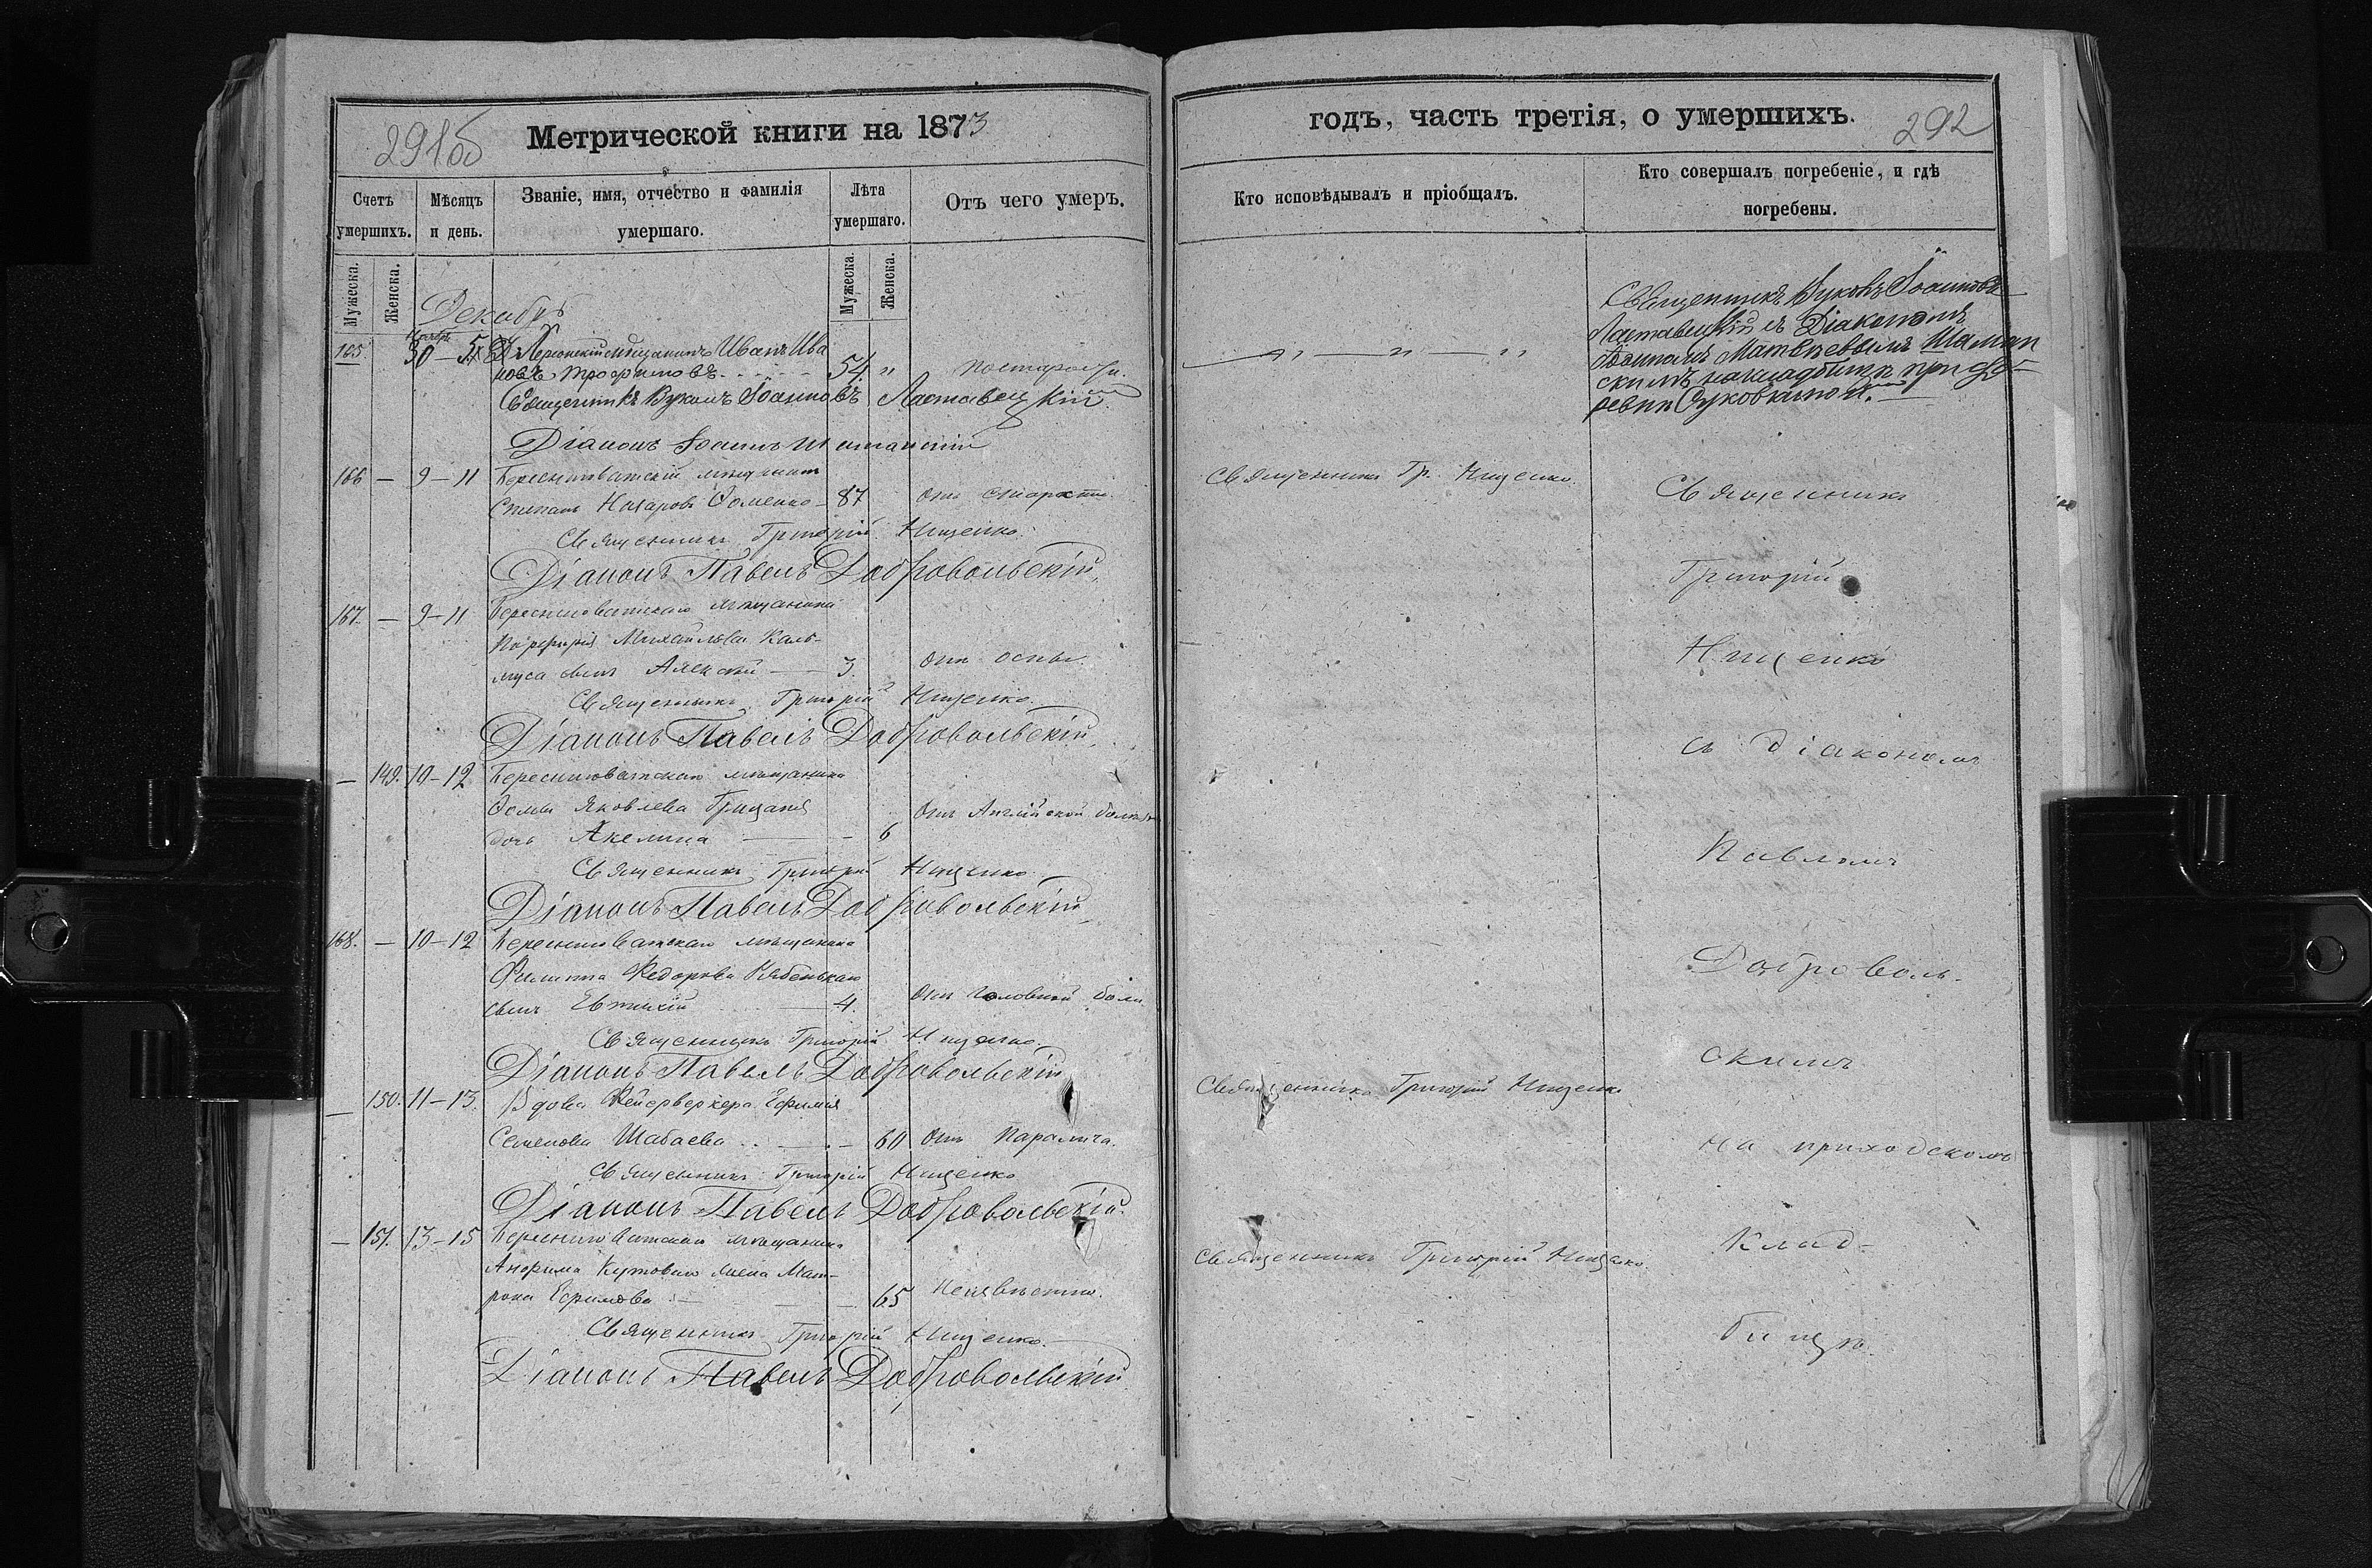 291об
Метрической книги на 1873
Счетъ умершихъ.
Мѣсяцъ и день.
Званіе, имя, отчество и фамилія умершаго.
Лѣта умершаго.
Отъ чего умеръ.
Мужеска.
Женска.
Мужеска.
Женска.
Декабрь
Ноябрь
165. 30 — Херсонскій мѣщанинъ Иванъ Ива
новъ Трофимовъ 54 "
Священникъ Вуколъ Іоанновъ Ластавецкій
Діаконъ Іоаннъ
166 — 9—11 Береснѣговатскій мѣщанинъ
Степанъ Назаровъ Фоменко — 87 отъ старости.
Священникъ Григорій Нищенко.
Діаконъ Павелъ Добровольскій
167. — 9—11 Береснѣговатскаго мѣщанина
Порфирія Михайлова Каль-
муса сынъ Алексѣй — 3. отъ оспы.
Священникъ Григорій Нищенко.
Діаконъ Павелъ Добровольскій
— 149. 10—12 Береснѣговатскаго мѣщанина
Фомы Яковлева Грицая
дочь Акелина — — 6 отъ Англійской
Священникъ Григорій Нищенко
Діаконъ Павелъ Добровольскій
168. — 10—12 Береснѣговатскаго мѣщанина
Филиппа Федорова
сынъ Евтихій — 4. отъ головной боли
Священникъ Григорій Нищенко
Діаконъ Павелъ Добровольскій
— 150. 11—13. Вдова Фейерверкера Ефимія
Семенова Шабаева — 60 отъ паралича.
Священникъ Григорій Нищенко
Діаконъ Павелъ Добровольскій
— 151. 13—15 Береснѣговатскаго мѣщанина
Анфима Кутоваго жена Мат-
рона Ефимова — — 65 Неизвѣстно.
Священникъ Григорій Нищенко.
Діаконъ Павелъ Добровольскій
годъ, часть третія, о умершихъ.
292
Кто исповѣдывалъ и пріобщалъ.
Кто совершалъ погребеніе, и гдѣ погребены.
Священникъ Вуколъ Іоанновъ
Ластавецкій съ Діакономъ
Іоанномъ Матвѣевымъ
скимъ на кладбищѣ при де-
ревнѣ
Священникъ Гр. Нищенко.
Священникъ
Григорій
Нищенко
съ діакономъ
Павломъ
Доброволь-
скимъ
Священникъ Григорій Нищенко
на приходскомъ
Клад-
Священникъ Григорій Нищенко.
бищѣ.